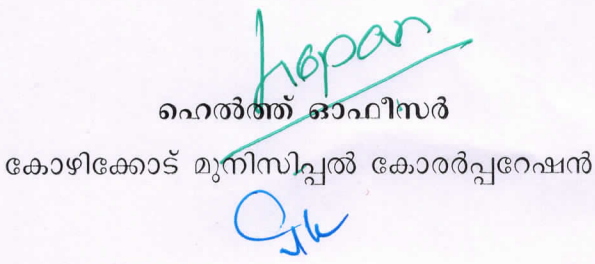 ഹെൽത്ത് ഓഫീസർ
കോഴിക്കോട് മുനിസിപ്പൽ കോരർപ്പറേഷൻ